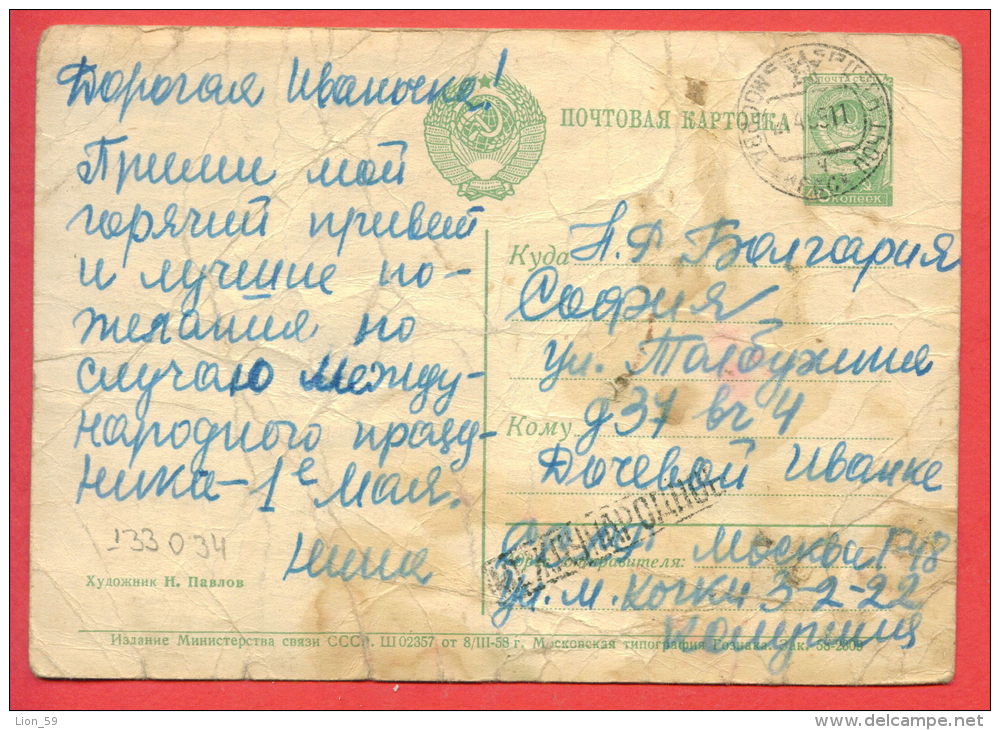 Дорогая Иваночка!
Прими мой
горячий привет
и лучшие по-
желания по
случаю между-
народного празд-
ника - 1е мая.
Нина
133034
Художник Н. Павлов
ПОЧТОВАЯ КАРТОЧКА
ПОЧТА СССР
КОПЕЕК
Куда Н.Р. Болгария
София
ул. Толбухина
д 37 вг 4
Кому
Дочевой Иванке
МЕЖДУНАРОДНОЕ
СССР Москва Г-48
отправителя:
ул. М. Кочки 3-2-22
Издание Министерства связи СССР. Ш 02357 от 8/III-58 г. Московская типография Гознака. Зак. 58-2609
Lion_59
delcampe.net